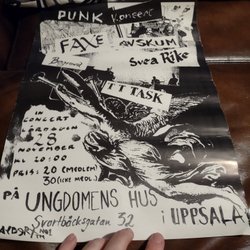 PUNK Konsert
FALLE AVSKUM
Svea Rike
TT TASK
IN
CONCERT
FREDAGEN
28
NOVEMBER
KL 20:00
PRIS: 20 (MEDLEM)
30 (ICKE MEDL.)
PÅ UNGDOMENS HUS i UPPSALA
Svartbäcksgatan 32